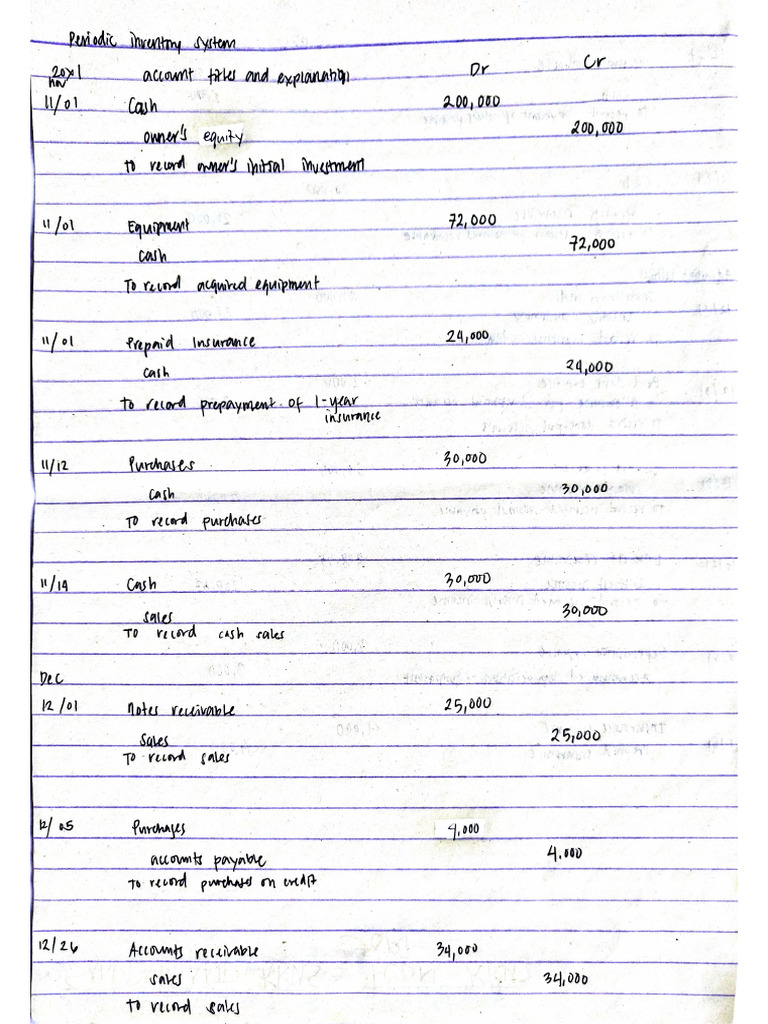 Periodic inventory system
20x1 account titles and explanation Dr Cr
nov
11/01 Cash 200,000
owner's equity 200,000
to record owner's initial investment
11/01 Equipment 72,000
cash 72,000
To record acquired equipment
11/01 Prepaid Insurance 24,000
cash 24,000
to record prepayment of 1-year
insurance
11/12 Purchases 30,000
cash 30,000
To record purchases
11/19 Cash 30,000
sales 30,000
To record cash sales
Dec
12/01 Notes receivable 25,000
Sales 25,000
To record sales
12/05 Purchases 4,000
accounts payable 4,000
To record purchases on credit
12/26 Accounts receivable 34,000
sales 34,000
to record sales